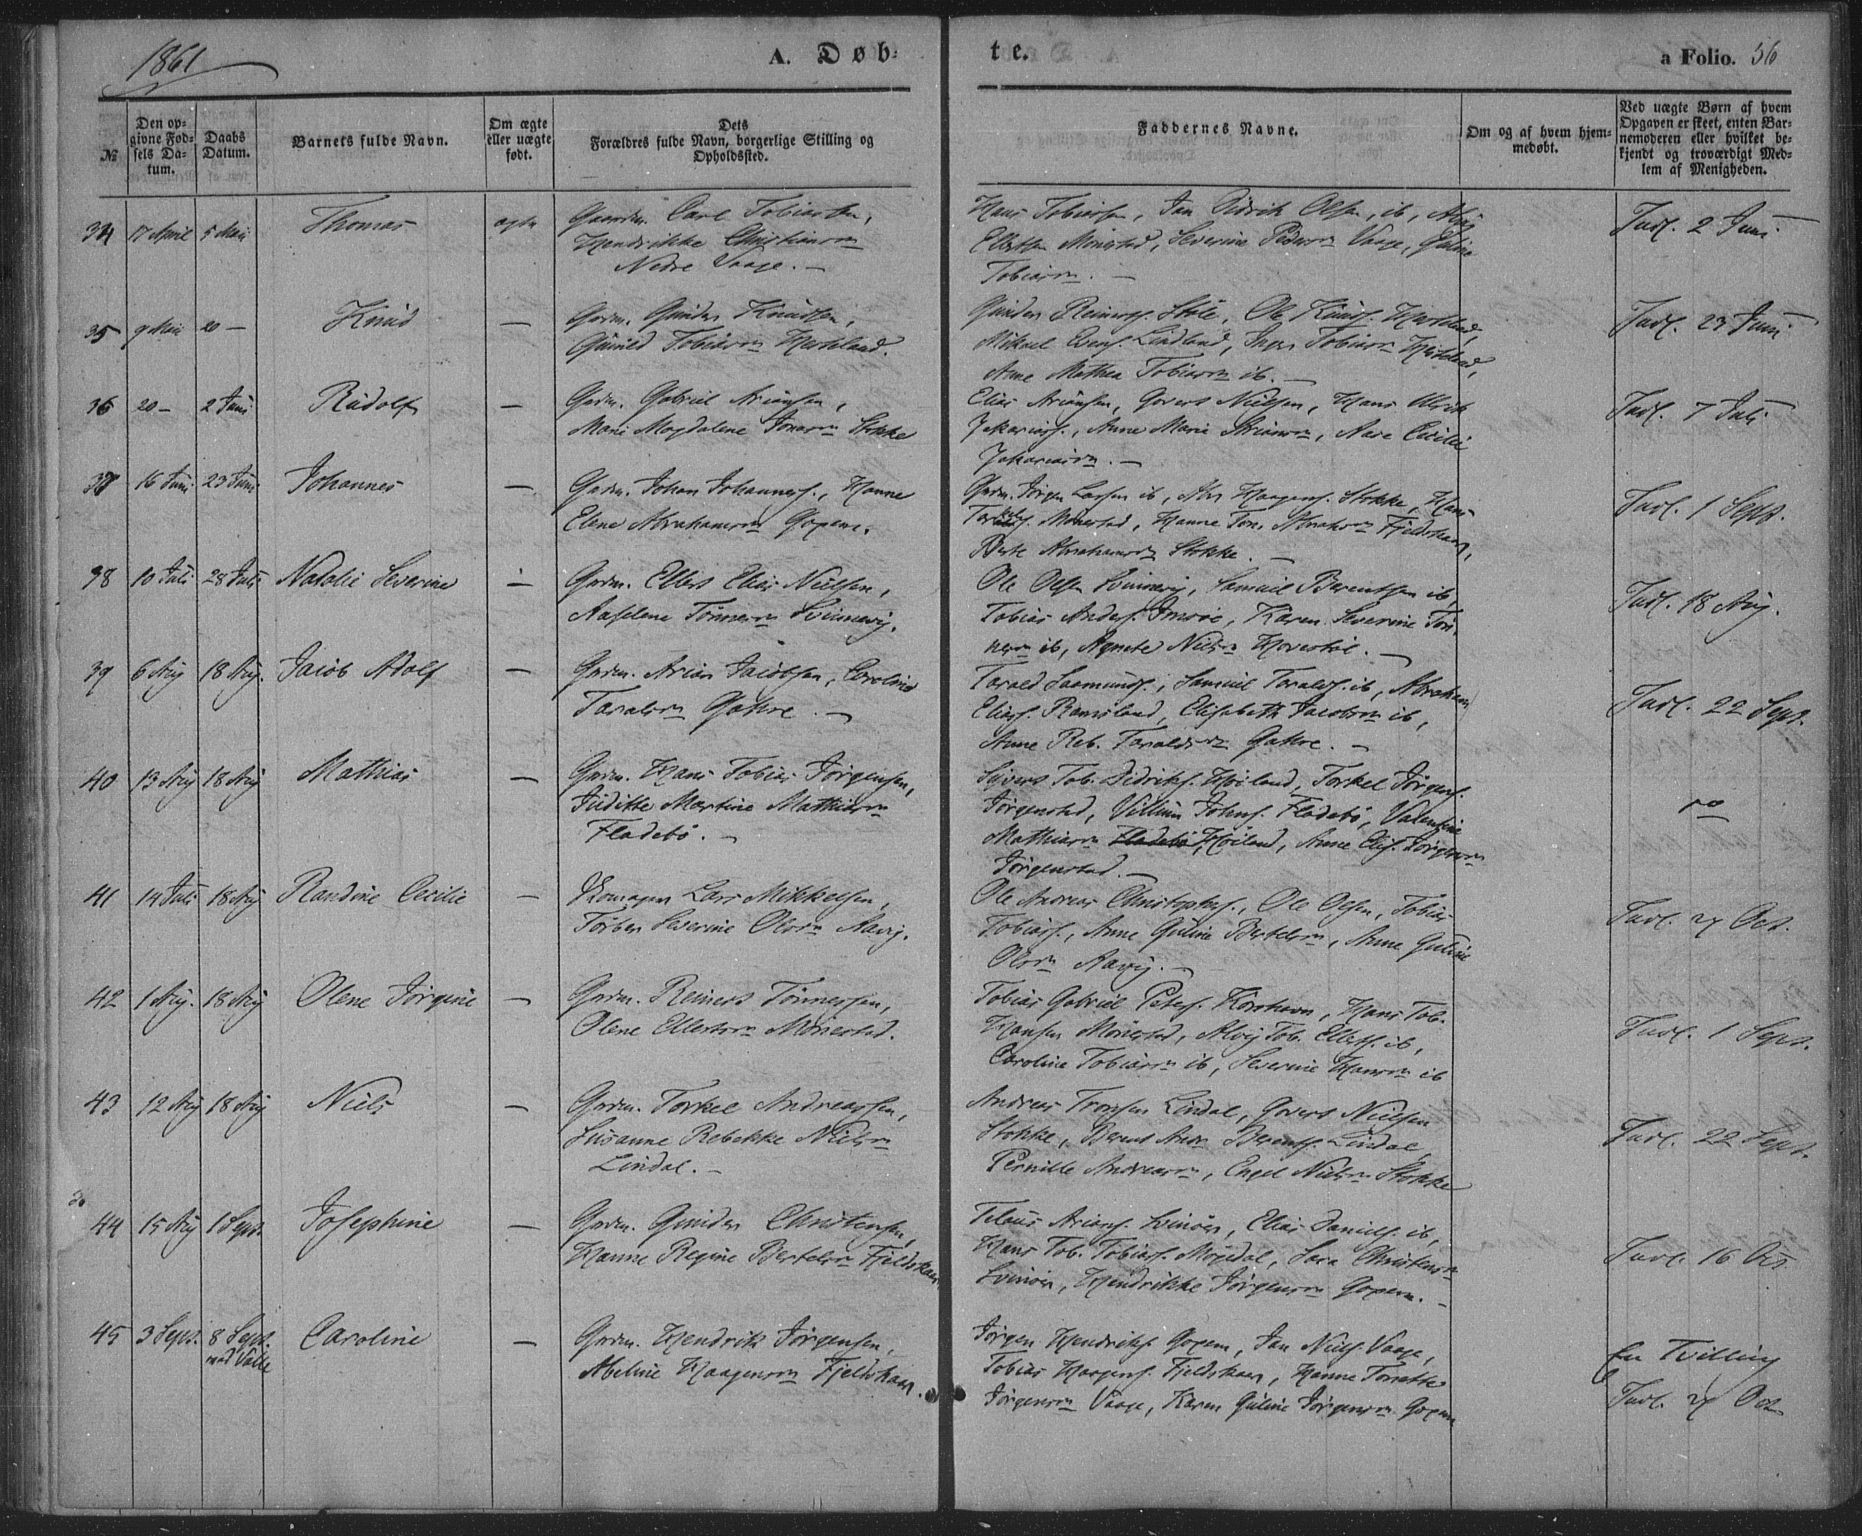 1861
A. Døb-
te.
a Folio. 56
№
Den op-
givne Fød-
sels Da-
tum.
Daabs
Datum.
Barnets fulde Navn.
Om ægte
eller uægte
født.
Dets
Forældres fulde Navn, borgerlige Stilling og
Opholdssted.
Faddernes Navne.
Om og af hvem hjem-
medøbt.
Ved uægte Børn af hvem
Opgaven er skeet, enten Bar-
nemoderen eller hvilket be-
kjendt og troværdigt Med-
lem af Menigheden.
34 17 April 5 Mai Thomas ægte
Carl Tobiassen,
Hendrikke Christiansn
Nedre Vaage. —
Hans Tobiassen, Jan Didrik Olsen, ib,
Ellefsen Mönestad, Severine Vaage,
Tobiasn. —
Indl. 2 Juni
35 9 Mai 20 — Knud —
Grdm. Gunder Knudsen,
Gunild Tobiasn Hasseland.
Gunder Reinerts. Stole, Ole Knuds.
Mikael Lindland, Inger Tobiasn
Anne Mathea Tobiasn ib. —
Indl. 23 Juni
36 20 — 2 Juni Rudolf —
Grdm. Gabriel Ariansen,
Marie Magdalene Jonasn Stokke
Elias Ariansen, Govert Nielsen, Hans Ulrik
Zakarias., Anne Marie Ariansn, Cecilie
Zakariasn. —
Indl. 7 Juli
37 16 Juni 23 Juni Johannes —
Grdm. Johan Johannes., Hanne
Elene Abrahamsn Gopem.
Grdm. Jörgen Larsen ib, Haagens. Stokke, Hans
Torkels. Mönestad, Hanne Ton. Abrahsn Fjeldskaar,
Berte Abrahamsn Stokke. —
Indl. 1 Sept.
38 10 Juli 28 Juli Natalie Severine —
Grdm. Ellert Elias Nielsen,
Aaselene Tönnesn
Ole Olsen Samuel Berentsen ib,
Tobias Anders. Karen Severine Tön-
nesn ib, Agnete Nielsn —
Indl. 18 Aug.
39 6 Aug 18 Aug. Jacob Adolf —
Grdm. Arian Jacobsen, Caroline
Taraldsn Gahre. —
Tarald Saamunds., Samuel Taralds. ib, Abraham
Elias. Ramsland, Elisabeth Jacobsn ib,
Anne Reb. Taraldsn Gahre. —
Indl. 22 Sept.
40 13 Aug 18 Aug Mathias —
Grdm. Hans Tobias Jörgensen,
Juditte Martine Mathiasn
Fladebö. —
Sivert Tob. Didriks. Höiland, Torkel Jörgens.
Jörgenstad, Villum Johns. Fladebö, Valentine
Mathiasn Fladebö Höiland, Anne Elis. Jörgensn
Jörgenstad. —
41 14 Juli 18 Aug Randine Cecilie —
Lars Mikkelsen,
Torbor Severine Olsn Aavig.
Ole Andreas Christophs., Ole Olsen, Tobias
Tobias., Anne Guline Bertelsn, Anne Guline
Olsn Aavig. —
Indl. 27 Oct.
42 1 Aug. 18 Aug Olene Jörgine —
Grdm. Reinert Tönnessen,
Olene Ellertsn Mönestad.
Tobias Gabriel Peters. Korshavn, Hans Tob.
Hansen Mönestad, Tob. Ellefs. ib,
Caroline Tobiasn ib, Severine Hansn ib
Indl. 1 Sept.
43 12 Aug 18 Aug Niels —
Grdm. Torkel Andreassen,
Susanne Rebekke Nielsn
Lindal. —
Andreas Tronsen Lindal, Govert Nielsen
Stokke, Bernt Andr. Berents. Lindal,
Pernille Andreasn, Engel Nielsn Stokke
Indl. 22 Sept.
44 15 Aug 1 Sept. Josephine —
Grdm. Gunder Christensen,
Hanne Regine Bertelsn Fjeldskaar
Arians. Svinör, Elias Daniels. ib,
Hans Tob. Tobias. Mögedal, Sara Christensn
Svinör, Hendrikke Jörgensn Gopem. —
Indl. 16 Oct
45 3 Sept. 8 Sept. Caroline —
ved Valle
Grdm. Hendrik Jörgensen,
Abeline Haagensn Fjeldskaar.
Jörgen Hendriks. Gopem, Jan Niels. Vaage,
Tobias Haagens. Fjeldskaar, Hanne Tonette
Jörgensn Vaage, Karen Guline Jörgensn Gopem
En Tvilling
Indl. 27 Oct